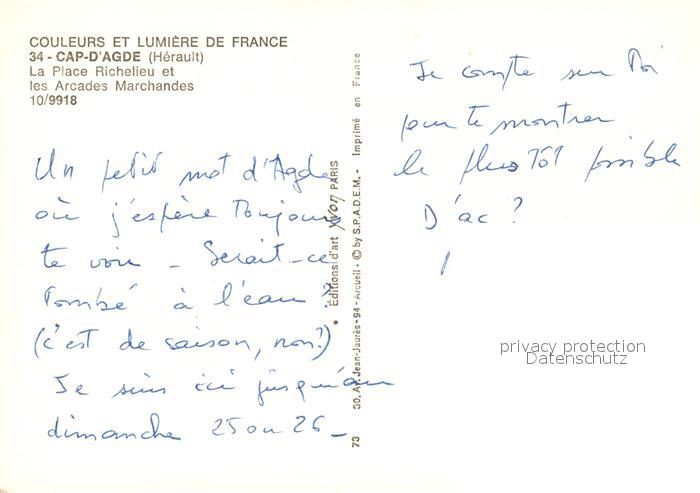 COULEURS ET LUMIÈRE DE FRANCE
34 - CAP-D'AGDE (Hérault)
La Place Richelieu et
les Arcades Marchandes
10/9918
Un petit mot d'Agde
où j'espère toujours
te voir - Serait-ce
tombé à l'eau ?
(c'est de saison, non?)
Je suis ici jusqu'au
dimanche 25 ou 26 -
73 30, Av. Jean-Jaurès-94-Arcueil - © by S.P.A.D.E.M. - Imprimé en France
• Éditions d'art yvon PARIS
Je compte sur toi
pour te montrer
le plus tôt possible
D'ac ?
privacy protection
Datenschutz